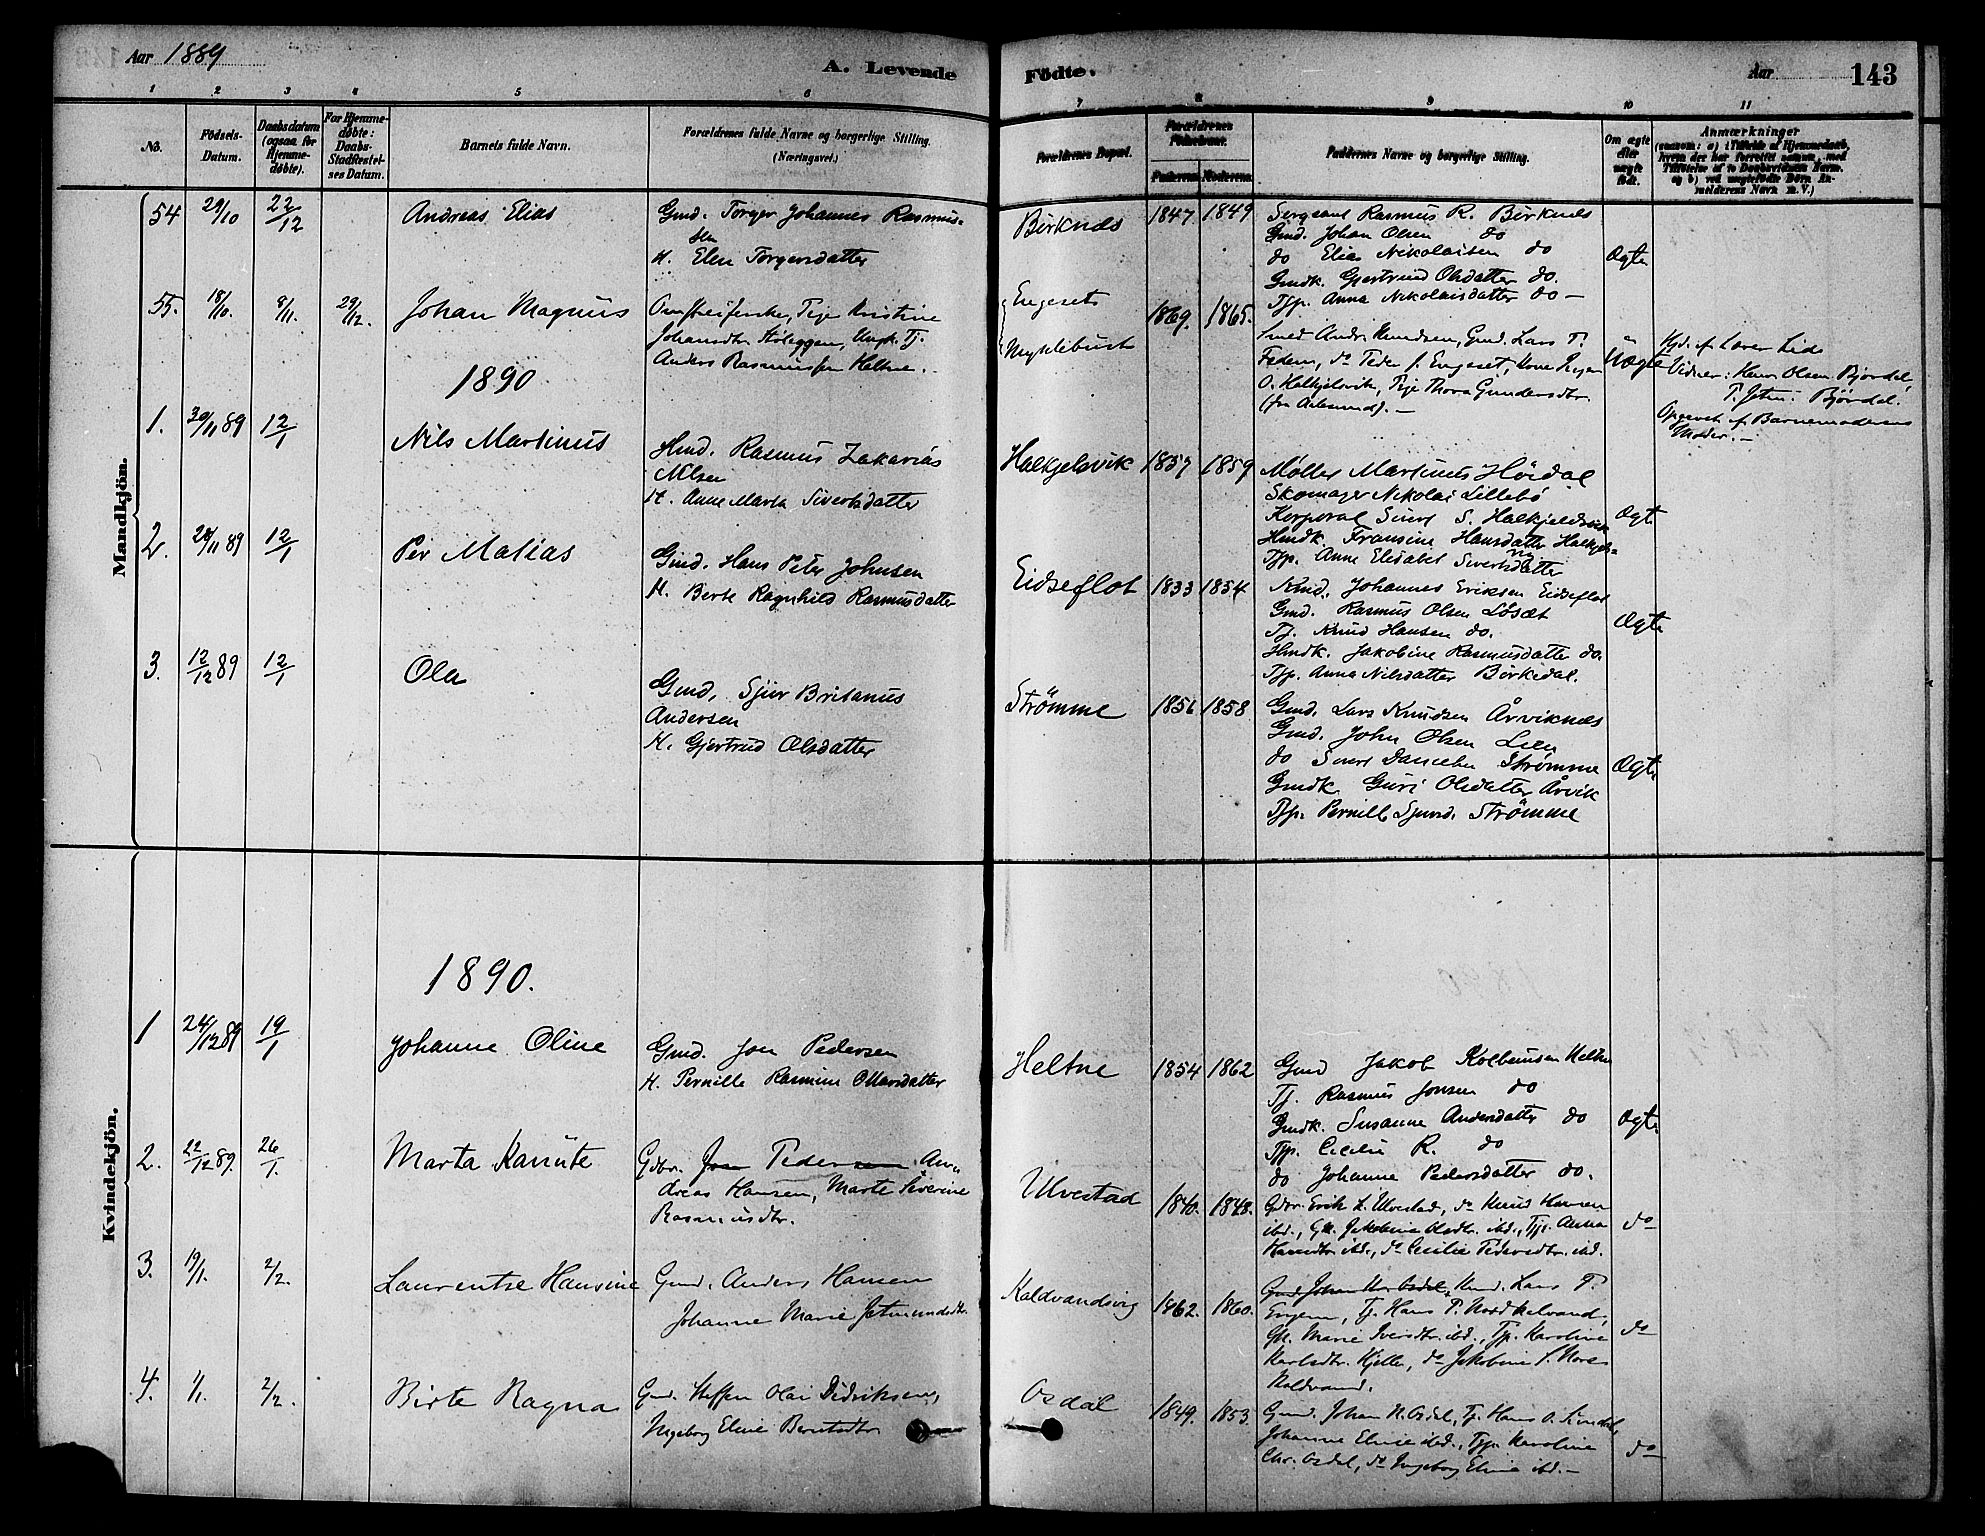 Aar 1889
A. Levende
Fødte.
Aar
143
1 2 3 4 5 6
7 8 9 10 11
No.
Fødsels-Datum.
Daabsdatum (ogsaa for Hjemme-døbte).
For Hjemme-døbte: Daabs-Stadfæstel-ses Datum.
Barnets fulde Navn.
Forældrenes fulde Navne og borgerlige Stilling. (Næringsvei.)
Forældrenes Bopæl.
Forældrenes Fødselsaar.
Faderens Moderens
Faddernes Navne og borgerlige Stilling.
Om ægte eller uægte født.
Anmærkninger
Mandkjön.
54 29/10 22/12 Andreas Elias
Gmd. Torger Johannes Rasmus-
sen
H. Elen Torgersdatter
Birknes 1847 1849
Sergeant Rasmus R. Birknes
Gmd. Johan Olsen do
do Elias Nikolaisen do
Gmdk. Gjertrud Olsdatter do.
Tjp. Anna Nikolaisdatter do
Ægte
55. 18/10. 8/11. 29/12. Johan Magnus
Pige Kristine
Johansdtr. Støleggen, Ungk. Tj.
Anders Rasmussen Heltne.
Engeset
Myklebust 1869. 1865.
Smed Andr. Knudsen, Gmd. Lars P.
do Peder J. Engeset, Kone
O. Halkjelsvik, Pige Thora Gundersdtr.
(fra Aalesund).
Uægte
Hjd. af Lærer Lid
Vidner: Olsen Bjørdal,
Bjørdal.
Opgivet af Barnemoderens
Moder.
1890
1. 30/11 89 12/1 Nils Martinus
Hmd. Rasmus Zakarias
Nilsen
H. Anne Marta Sivertsdatter
Halkjelsvik 1857 1859
Møller Martinus Høidal
Skomager Nikolai Lillebø
Korporal Sivert S. Halkjeldsvik
Hmdk. Fransine Hansdatter Halkjels-
Tjp. Anne Elisabet Sivertsdatter
Ægt.
2. 28/11 89 12/1 Per Matias
Gmd. Hans Peter Johnsen
H. Berte Ragnhild Rasmusdatter
Eidseflot 1833 1854
Kmd. Johannes Eriksen Eidseflot
Gmd. Rasmus Olsen Løset
Tj. Knud Hansen do.
Hmdk. Jakobine Rasmusdatter do.
Tjp. Anna Nilsdatter Birkedal.
Ægte
3. 12/12 89 12/1 Ola
Gmd. Sjur Britanus
Andersen
H. Gjertrud Olsdatter
Strømme 1856 1858
Gmd. Lars Knudsen Årviknes
Gmd. John Olsen Lien
do Sivert Danielsen Strømme
Gmdk. Guri Olsdatter Årvik
Tjp. Pernille Sjursd. Strømme
Ægte
Kvindekjön.
1890.
1 24/12 89 19/1 Johanne Oline
Gmd. Jon Pedersen
H. Pernille Rasmine Ottarsdatter
Heltne 1854 1862
Gmd Jakob Kolbeinsen Heltne
Tj. Rasmus Jonsen do
Gmdk. Susanne Andersdatter do
Tjp. Cecilie R. do
do Johanne Pedersdatter do.
Ægte
2. 22/12 89. 26/1. Marta Kanute
Gdbr. Jon Pedersen An-
dreas Hansen, Marte Severine
Rasmusdtr.
Ulvestad 1840. 1848.
Gdbr. Erik L. Ulvestad, do Knud Hansen
ibd., Gk. Jakobine Olsdtr. ibd., Tjp. Anna
Hansdtr. ibd., do Cecilie Pedersdtr. ibd.
do
3. 19/1. 2/2. Laurentse Hansine
Gmd. Anders Hansen
Johanne Marie Jetmundsdtr.
Kaldvandsvig 1862. 1860.
Gmd Johan Osdal, Kmd. Lars P.
Tj. Hans P. Nordkalvand,
Gk. Marie Iversdtr. ibd., Tjp. Karoline
Karlsdtr. Kjelle, do Jakobine
Kaldvand.
do
4. 1/1. 2/2. Birte Ragna
Gmd. Steffen Olai Didriksen,
Ingeborg Eline Berntsdtr
Osdal 1849. 1853.
Gmd. Johan N. Osdal, Tj. Hans O.
Johanne Elise ibd., Tjp. Karoline
Chr. Osdal, do Ingeborg Eline ibd.
do